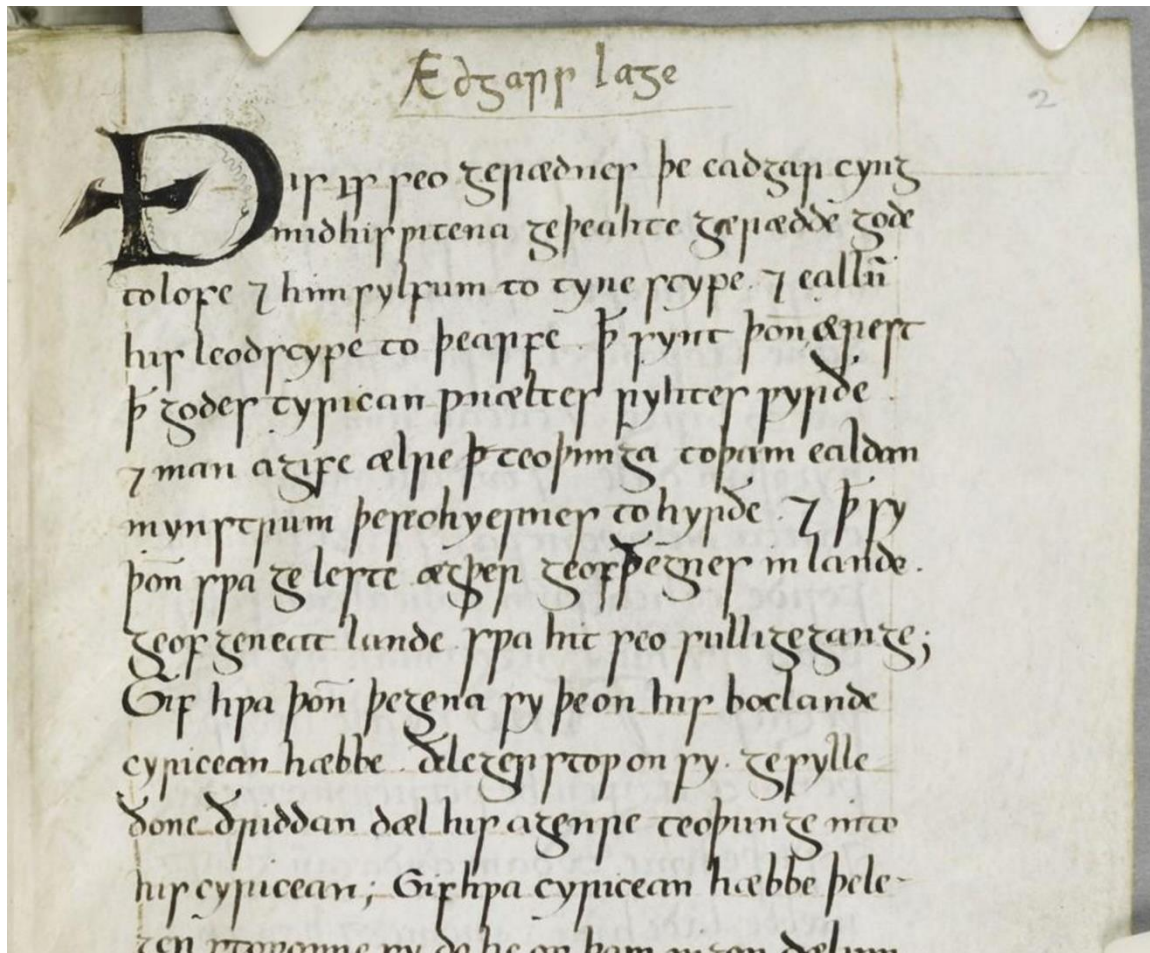 Ædgares lage
2
Ðis is seo gerædnes þe eadgar cyng
mid his ƿitena geþeahte gærædde gode
to lofe ⁊ him sylfum to cyne scype. ⁊ eallū
his leodscype to þearfe. ꝥ synt þoñ ærest
ꝥ godes cyrican ælces ryhtes ƿyrðe.
⁊ man agife ælre ꝥ teoþunga to þam ealdan
mynstrum þe seo hyernes to hyrð. ⁊ ꝥ sy
þoñ sƿa ge leste ægþer ge of þegnes in lande.
ge of geneat lande sƿa hit seo sulh gegange;
Gif hƿa þoñ þegena sy þe on his boclande
cyricean hæbbe. ðe leger stoƿ on sy. gesylle
ðone ðriddan dæl his agenre teoþunge into
his cyricean; Gif hƿa cyricean hæbbe þe le-